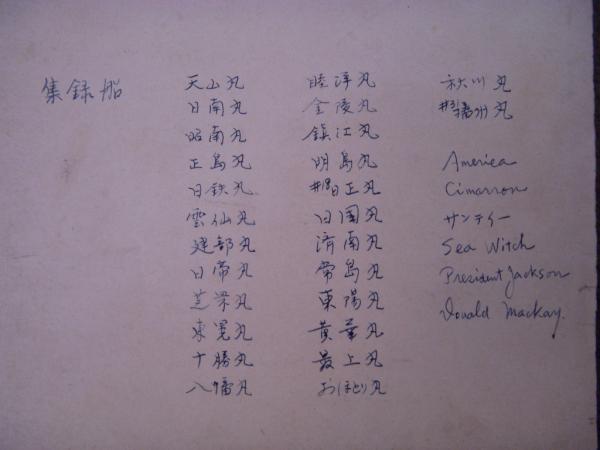 集録船
天山丸
日南丸
昭南丸
正島丸
日鉄丸
雲仙丸
建部丸
日帝丸
芝栄丸
東晃丸
十勝丸
八幡丸
睦洋丸
金陵丸
鎮江丸
明島丸
日正丸
日国丸
済南丸
帝島丸
東陽丸
黄華丸
最上丸
おほとり丸
秋川丸
播州丸
America
Cimarron
サンティー
Sea Witch
President Jackson
Donald Mackay.